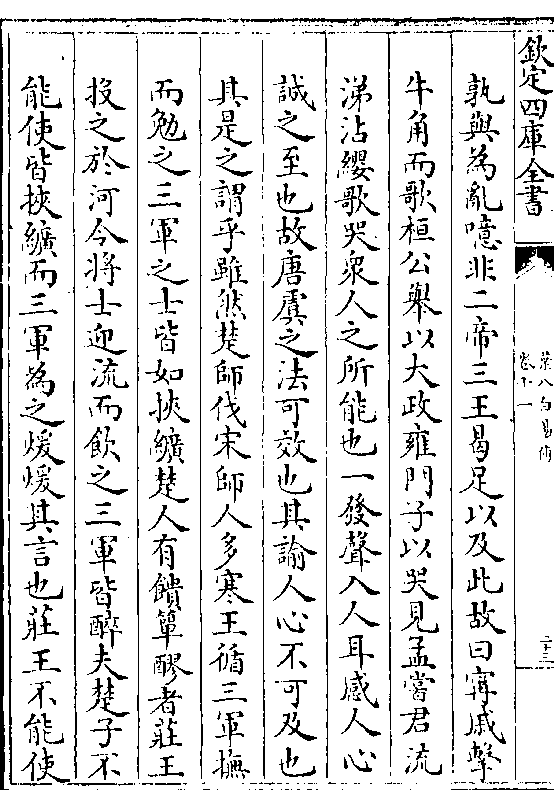 欽定四庫全書
葉八白易傳
卷十一
二十三
孰與為亂噫非二帝三王曷足以及此故曰甯戚擊
牛角而歌桓公舉以大政雍門子以哭見孟嘗君流
涕沾纓歌哭衆人之所能也一發聲入人耳感人心
誠之至也故唐虞之法可效也其諭人心不可及也
其是之謂乎雖然楚師伐宋師人多寒王循三軍撫
而勉之三軍之士皆如挾纊楚人有饋簞醪者莊王
投之於河令將士迎流而飲之三軍皆醉夫楚子不
能使皆挾纊而三軍為之煖煖其言也莊王不能使